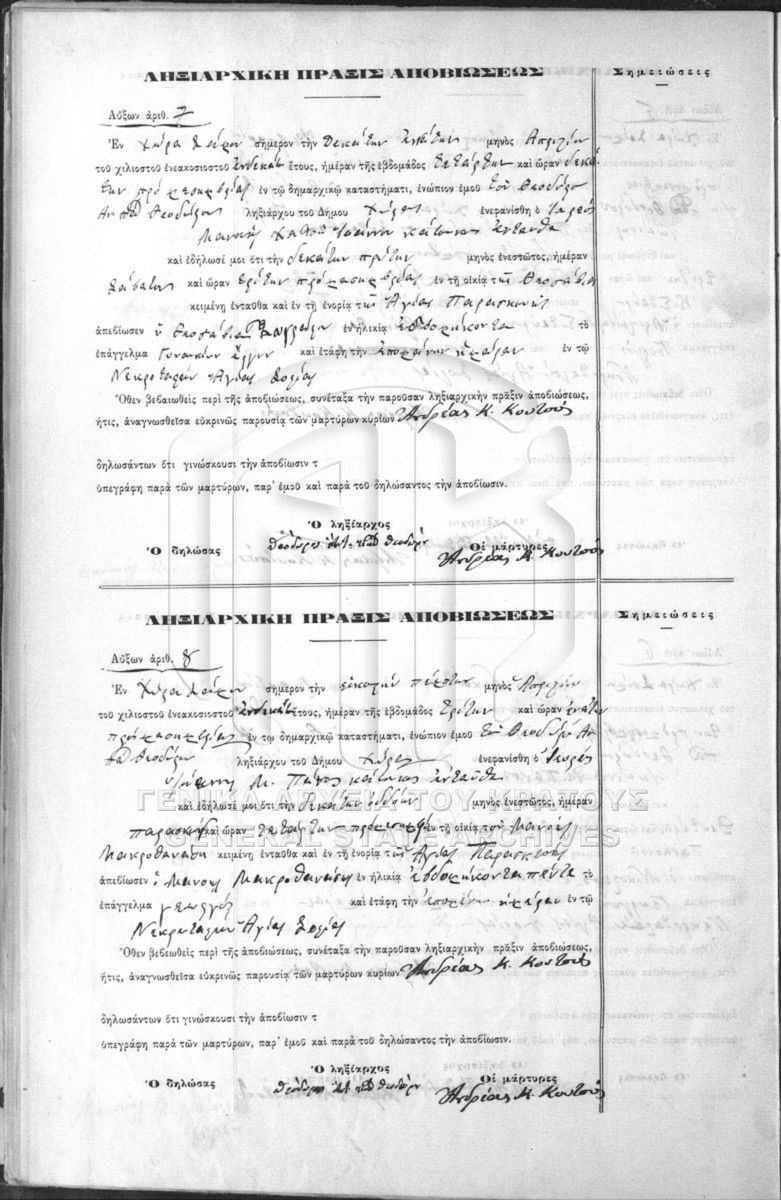 ΛΗΞΙΑΡΧΙΚΗ ΠΡΑΞΙΣ ΑΠΟΒΙΩΣΕΩΣ
Σημειώσεις
Αὔξων ἀριθ. 7
Ἐν Χώρα σήμερον τὴν Δεκάτην μηνὸς Απριλίου
τοῦ χιλιοστοῦ ἐνεακοσιοστοῦ ἑνδεκάτου ἔτους, ἡμέραν τῆς ἑβδομάδος τετάρτην καὶ ὥραν δεκά
την πρὸ μεσημβρίας ἐν τῷ δημαρχικῷ καταστήματι, ἐνώπιον ἐμοῦ τοῦ Θεοδώρου
Θεοδώρου ληξιάρχου τοῦ Δήμου Χώρας ἐνεφανίσθη ὁ
Ἰωάννου κάτοικος ἐνταῦθα
καὶ ἐδήλωσέ μοι ὅτι τὴν δεκάτην πρώτην μηνὸς ἐνεστῶτος, ἡμέραν
Σάβατον καὶ ὥραν τρίτην πρὸ μεσημβρίας ἐν τῇ οἰκίᾳ τῆς
κειμένῃ ἐνταῦθα καὶ ἐν τῇ ἐνορίᾳ τῆς Ἁγίας Παρασκευῆς
ἀπεβίωσεν ἡ ἐν ἡλικίᾳ ἑβδομήκοντα τὸ
ἐπάγγελμα Γυναικίων ἔργων καὶ ἐτάφη τὴν ἑπομένην ἡμέραν ἐν τῷ
Νεκροταφείῳ Ἁγίας Σοφίας
Ὅθεν βεβαιωθεὶς περὶ τῆς ἀποβιώσεως, συνέταξα τὴν παροῦσαν ληξιαρχικὴν πρᾶξιν ἀποβιώσεως,
ἥτις, ἀναγνωσθεῖσα εὐκρινῶς παρουσίᾳ τῶν μαρτύρων κυρίων Ἀνδρέας Κ. Κουτσοῦς
δηλωσάντων ὅτι γινώσκουσι τὴν ἀποβίωσιν τ
ὑπεγράφη παρὰ τῶν μαρτύρων, παρ' ἐμοῦ καὶ παρὰ τοῦ δηλώσαντος τὴν ἀποβίωσιν.
Ὁ ληξίαρχος
Ὁ δηλώσας Θεόδωρος Θεοδώρου Οἱ μάρτυρες
Ἀνδρέας Κ. Κουτσοῦς
ΛΗΞΙΑΡΧΙΚΗ ΠΡΑΞΙΣ ΑΠΟΒΙΩΣΕΩΣ
Σημειώσεις
Αὔξων ἀριθ. 8
Ἐν Χώρα σήμερον τὴν εἰκοστὴν πέμπτην μηνὸς Απριλίου
τοῦ χιλιοστοῦ ἐνεακοσιοστοῦ ἑνδεκάτου ἔτους, ἡμέραν τῆς ἑβδομάδος τρίτην καὶ ὥραν ἐνάτην
πρὸ μεσημβρίας ἐν τῳ δημαρχικῷ καταστήματι, ἐνώπιον ἐμοῦ τοῦ Θεοδώρου
Θεοδώρου ληξιάρχου τοῦ Δήμου Χώρας ἐνεφανίσθη ὁ
Ἰωάννης Μ. κάτοικος ἐνταῦθα
καὶ ἐδήλωσέ μοι ὅτι τὴν δεκάτην ὀγδόην μηνὸς ἐνεστῶτος, ἡμέραν
παρασκευὴν καὶ ὥραν τετάρτην πρὸ μεσημβρίας ἐν τῇ οἰκίᾳ τοῦ Μανόλη
Μακροθανάση κειμένῃ ἐνταῦθα καὶ ἐν τῇ ἐνορίᾳ τῆς Ἁγίας Παρασκευῆς
ἀπεβίωσεν ὁ Μανόλης Μακροθανάσης ἐν ἡλικίᾳ ἑβδομήκοντα πέντε τὸ
ἐπάγγελμα γεωργὸς καὶ ἐτάφη τὴν ἑπομένην ἡμέραν ἐν τῷ
Νεκροταφείῳ Ἁγίας Σοφίας
Ὅθεν βεβεωθεὶς περὶ τῆς ἀποβιώσεως, συνέταξα τὴν παροῦσαν ληξιαρχικὴν πρᾶξιν ἀποβιώσεως,
ἥτις, ἀναγνωσθεῖσα εὐκρινῶς παρουσίᾳ τῶν μαρτύρων κυρίων Ἀνδρέας Κ. Κουτσοῦς
δηλωσάντων ὅτι γινώσκουσι τὴν ἀποβίωσιν τ
ὑπεγράφη παρὰ τῶν μαρτύρων, παρ' ἐμοῦ καὶ παρὰ τοῦ δηλώσαντος τὴν ἀποβίωσιν.
Ὁ ληξίαρχος
Ὁ δηλώσας Θεόδωρος Θεοδώρου Οἱ μάρτυρες
Ἀνδρέας Κ. Κουτσοῦς
ΓΕΝΙΚΑ ΑΡΧΕΙΑ ΤΟΥ ΚΡΑΤΟΥΣ
GENERAL STATE ARCHIVES